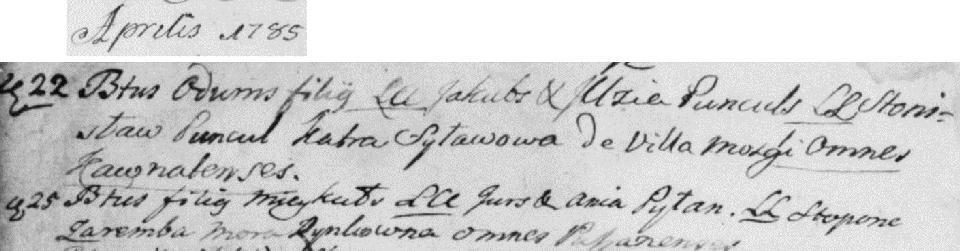 Aprilis 1785
22 Btus Odums filiq LCC Jakubs & Uzia Punculs LL Stoni=
staw Puncul Katra Sytawowa de Villa Mozgi omnes
Kawnatenses.
25 Btus filiq LCC Jurs & ania Pytan. LL Stopone
Zaremba mora Rynkowna omnes